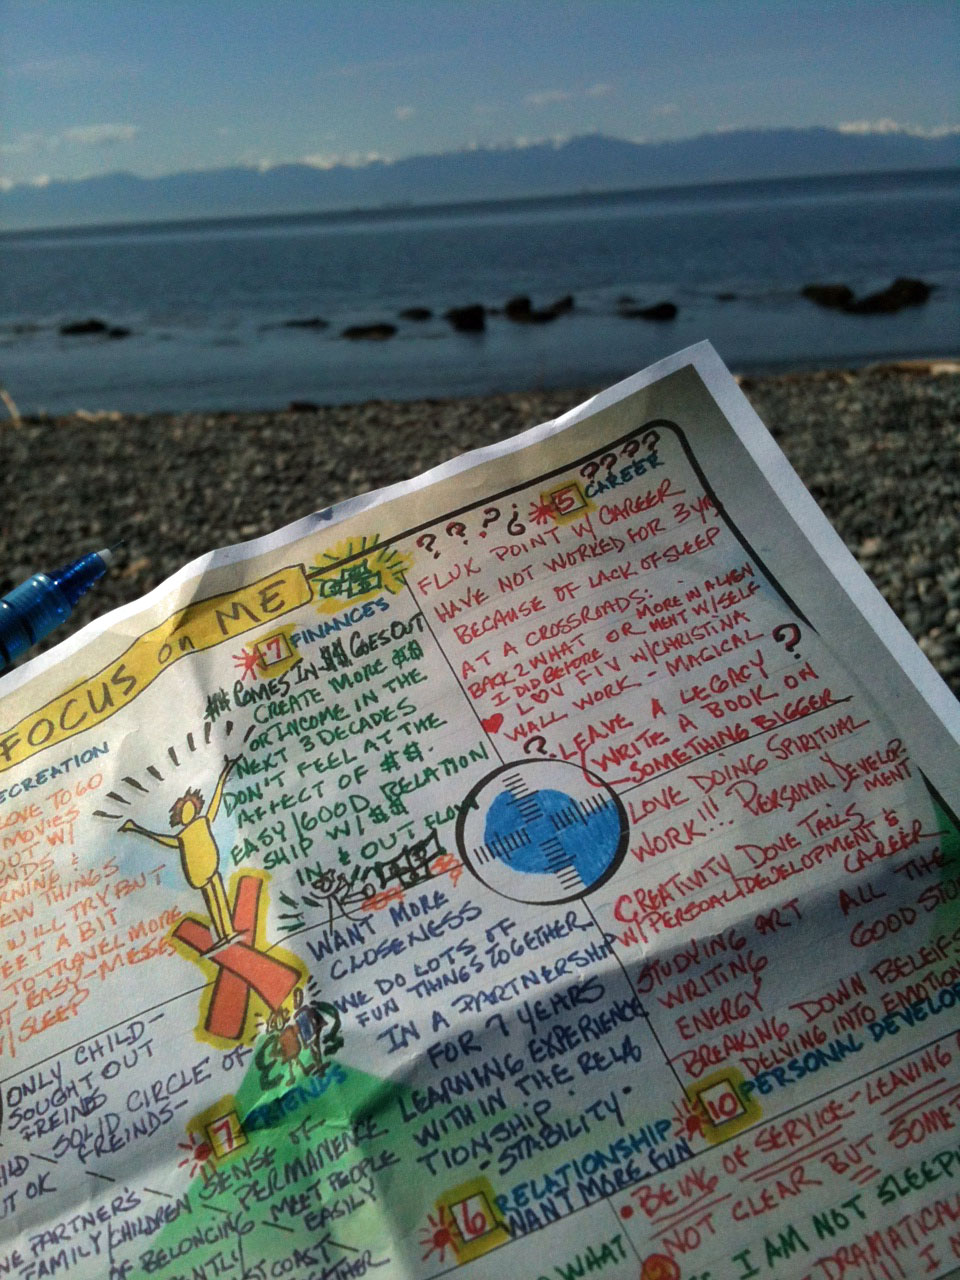 FOCUS on ME
7 FINANCES
## COMES IN- ## GOES OUT
CREATE MORE ##
OR INCOME IN
NEXT 3 DECADES
DON'T FEEL AT THE
AFFECT OF ##.
EASY/GOOD RELATION
SHIP W/ ##
IN & OUT FLOW
? ? ? ¿
5 CAREER
? ? ? ?
FLUX POINT W/ CAREER
HAVE NOT WORKED FOR 3 YRS
BECAUSE OF LACK OF SLEEP
AT A CROSSROADS:
BACK 2 WHAT OR MORE IN ALIGN
I DID BEFORE MENT W/ SELF
LOV FIV W/ CHRISTINA
WALL WORK - MAGICAL
?
? LEAVE A LEGACY
WRITE A BOOK ON
SOMETHING BIGGER
LOVE DOING SPIRITUAL
WORK!!! PERSONAL DEVELOP
MENT
CREATIVITY DONE TAILS
W/ PERSONAL DEVELOPMENT &
CAREER
STUDYING ART ALL THE
WRITING GOOD STU
ENERGY
BREAKING DOWN BELEIFS
DELVING INTO EMOTION
10 PERSONAL DEVELOP
ECREATION
OVE TO GO
MOVIES
OUT W/
ENDS &
RNING
EW THINGS
WILL TRY BUT
EET A BIT
TO TRAVEL MORE
OT EASY-MESSES
W/ SLEEP
WANT MORE
CLOSENESS
WE DO LOTS OF
FUN THINGS TOGETHER
IN A PARTNERSHIP
FOR 7 YEARS
LEARNING EXPERIENCE
WITHIN THE RELA
TIONSHIP.
• STABILITY •
6 RELATIONSHIP
WANT MORE FUN
ONLY CHILD-
SOUGHT OUT
FREINDS
SOLID CIRCLE OF
FREINDS-
HILD
UT OK
7 FRIENDS
SENSE OF
PERMANENCE
NE PARTNERS
FAMILY/CHILDREN
OF BELONGING MEET PEOPLE
EASILY
NTLY
ST COAST
• BEING OF SERVICE - LEAVING
NOT CLEAR BUT SOMET
I AM NOT SLEEPI
DRAMATICAL
WHAT